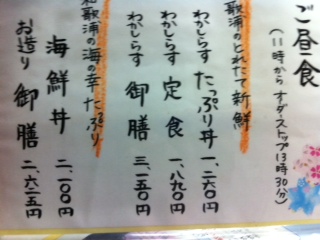 ご昼食
(11時からオーダーストップ13時30分)
歌浦のとれたて新鮮
わかしらす たっぷり丼 一、二六〇
わかしらす 定食 一、八九〇
わかしらす 御膳 三、一五〇円
和歌浦の海の幸たっぷり
海鮮丼 二、一〇〇円
お造り御膳 二、六二五円